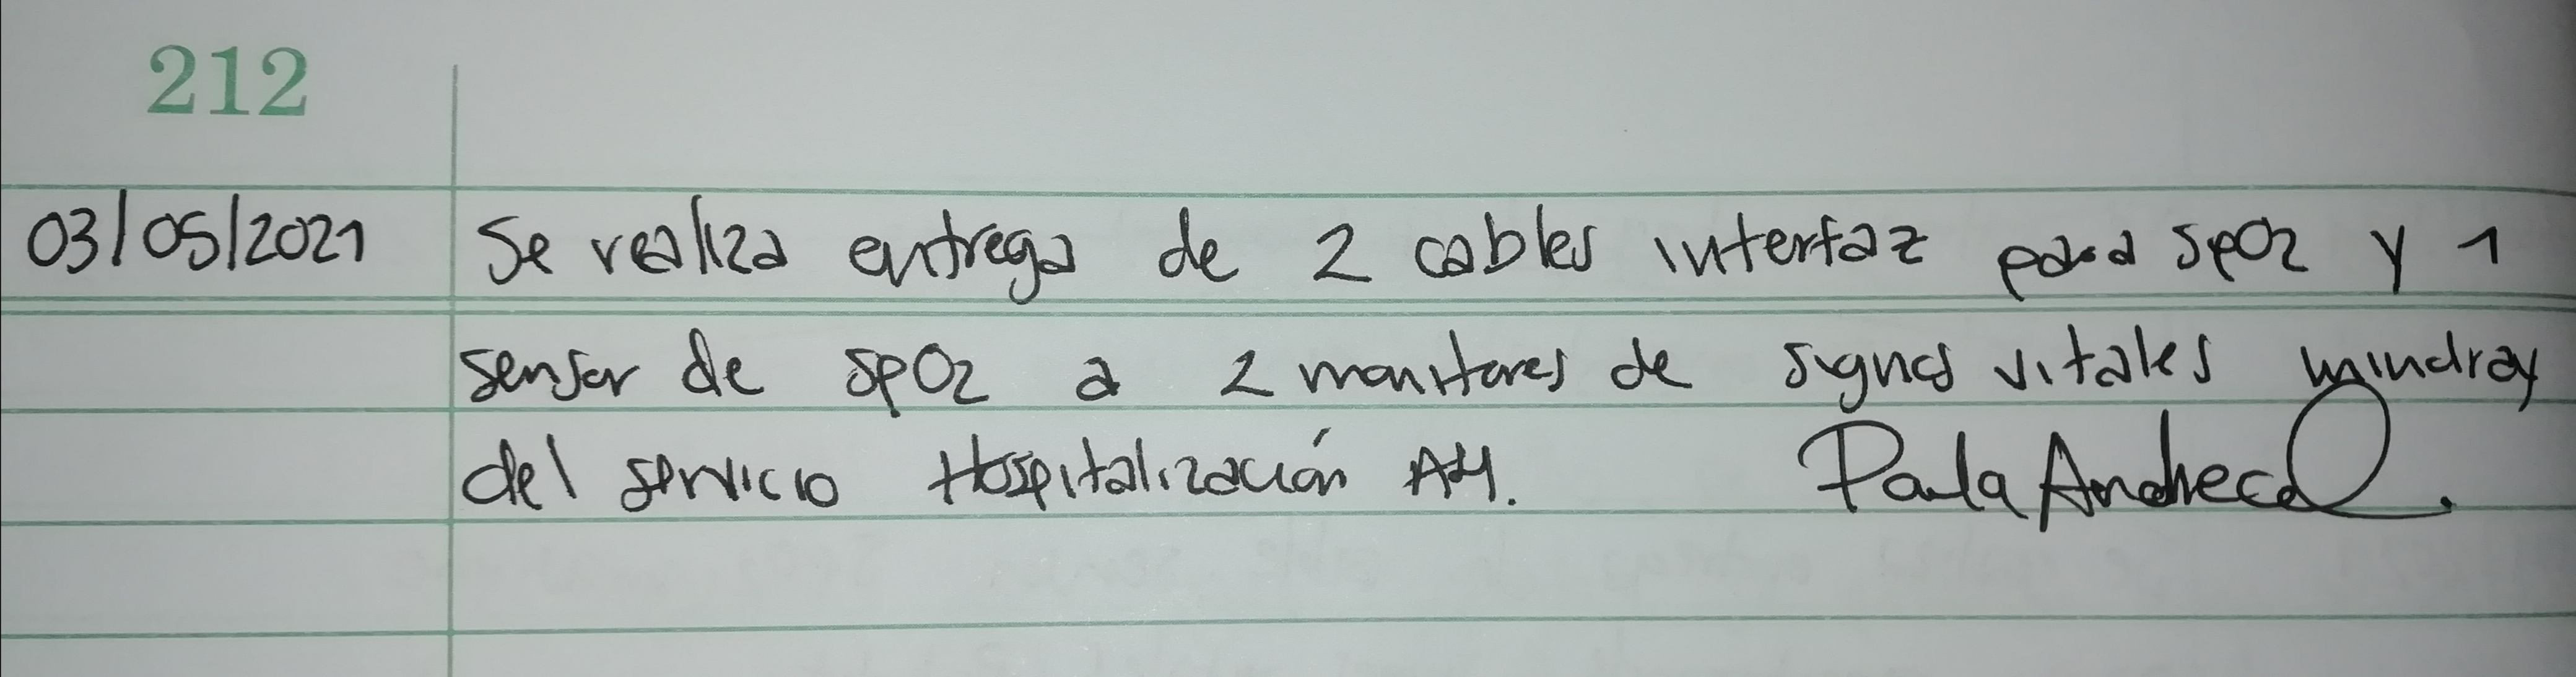 212
03/05/2021 Se realiza entrega de 2 cables interfaz para SpO2 y 1
sensor de SpO2 a 2 monitores de signos vitales mindray
del servicio Hospitalización A4.
Paula Andrea